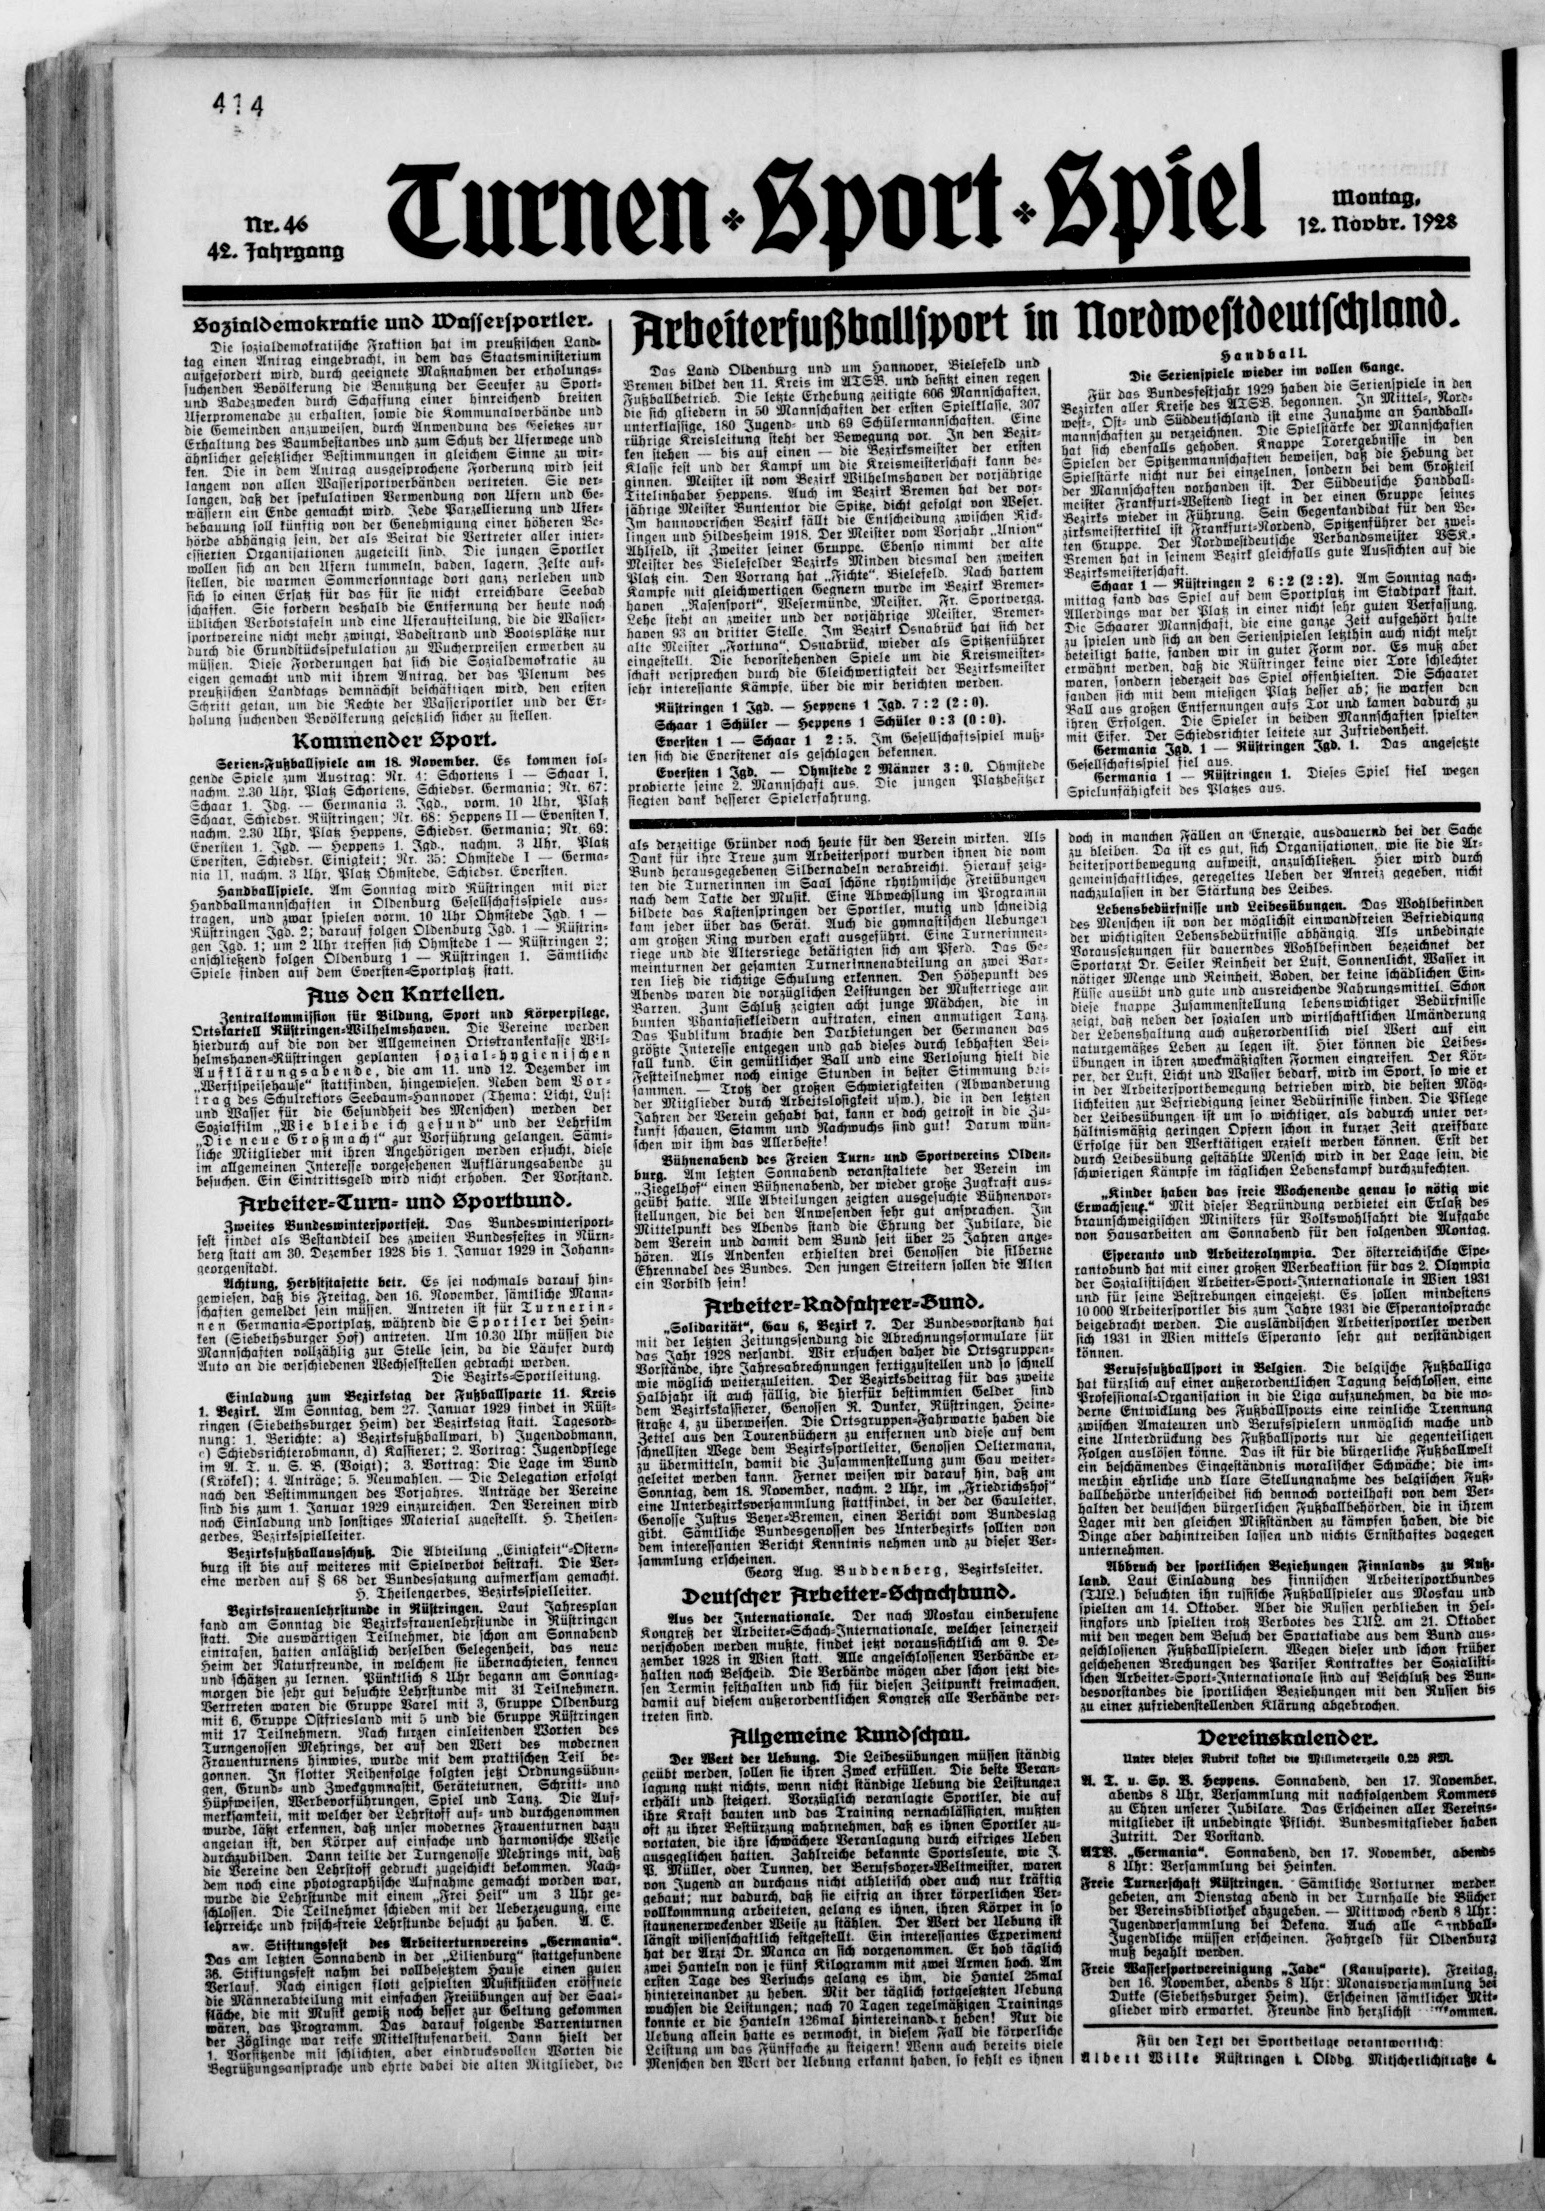 414
Nr. 46
42. Jahrgang
Turnen · Sport · Spiel
Montag,
12. Novbr. 1928
Sozialdemokratie und Wassersportler.
Die sozialdemokratische Fraktion hat im preußischen Land-
tag einen Antrag eingebracht, in dem das Staatsministerium
aufgefordert wird, durch geeignete Maßnahmen der erholungs-
suchenden Bevölkerung die Benutzung der Seeufer zu Sport-
und Badezwecken durch Schaffung einer hinreichend breiten
Uferpromenade zu erhalten, sowie die Kommunalverbände und
die Gemeinden anzuweisen, durch Anwendung des Gesetzes zur
Erhaltung des Baumbestandes und zum Schutz der Uferwege und
ähnlicher gesetzlicher Bestimmungen in gleichem Sinne zu wir-
ken. Die in dem Antrag ausgesprochene Forderung wird seit
langem von allen Wassersportverbänden vertreten. Sie ver-
langen, daß der spekulativen Verwendung von Ufern und Ge-
wässern ein Ende gemacht wird. Jede Parzellierung und Ufer-
bebauung soll künftig von der Genehmigung einer höheren Be-
hörde abhängig sein, der als Beirat die Vertreter aller inter-
essierten Organisationen zugeteilt sind. Die jungen Sportler
wollen sich an den Ufern tummeln, baden, lagern, Zelte auf-
stellen, die warmen Sommersonntage dort ganz verleben und
sich so einen Ersatz für das für sie nicht erreichbare Seebad
schaffen. Sie fordern deshalb die Entfernung der heute noch
üblichen Verbotstafeln und eine Uferaufteilung, die die Wasser-
sportvereine nicht mehr zwingt, Badestrand und Bootsplätze nur
durch die Grundstücksspekulation zu Wucherpreisen erwerben zu
müssen. Diese Forderungen hat sich die Sozialdemokratie zu
eigen gemacht und mit ihrem Antrag, der das Plenum des
preußischen Landtags demnächst beschäftigen wird, den ersten
Schritt getan, um die Rechte der Wassersportler und der Er-
holung suchenden Bevölkerung gesetzlich sicher zu stellen.
Kommender Sport.
Serien-Fußballspiele am 18. November. Es kommen fol-
gende Spiele zum Austrag: Nr. 4: Schortens I — Schaar I,
nachm. 2.30 Uhr, Platz Schortens, Schiedsr. Germania; Nr. 67:
Schaar 1. Jdg. — Germania 3. Jgd., vorm. 10 Uhr, Platz
Schaar, Schiedsr. Rüstringen; Nr. 68: Heppens II — Eversten I,
nachm. 2.30 Uhr, Platz Heppens, Schiedsr. Germania; Nr. 69:
Eversten 1. Jgd. — Heppens 1. Jgd., nachm. 3 Uhr, Platz
Eversten, Schiedsr. Einigkeit; Nr. 35: Ohmstede I — Germa-
nia II, nachm. 3 Uhr, Platz Ohmstede, Schiedsr. Eversten.
Handballspiele. Am Sonntag wird Rüstringen mit vier
Handballmannschaften in Oldenburg Gesellschaftsspiele aus-
tragen, und zwar spielen vorm. 10 Uhr Ohmstede Jgd. 1 —
Rüstringen Jgd. 2; darauf folgen Oldenburg Jgd. 1 — Rüstrin-
gen Jgd. 1; um 2 Uhr treffen sich Ohmstede 1 — Rüstringen 2;
anschließend folgen Oldenburg 1 — Rüstringen 1. Sämtliche
Spiele finden auf dem Eversten-Sportplatz statt.
Aus den Kartellen.
Zentralkommission für Bildung, Sport und Körperpflege,
Ortskartell Rüstringen-Wilhelmshaven. Die Vereine werden
hierdurch auf die von der Allgemeinen Ortskrankenkasse Wil-
helmshaven-Rüstringen geplanten sozial-hygienischen
Aufklärungsabende, die am 11. und 12. Dezember im
„Werftspeisehause“ stattfinden, hingewiesen. Neben dem Vor-
trag des Schulrektors Seebaum-Hannover (Thema: Licht, Luft
und Wasser für die Gesundheit des Menschen) werden der
Sozialfilm „Wie bleibe ich gesund“ und der Lehrfilm
„Die neue Großmacht“ zur Vorführung gelangen. Sämt-
liche Mitglieder mit ihren Angehörigen werden ersucht, diese
im allgemeinen Interesse vorgesehenen Aufklärungsabende zu
besuchen. Ein Eintrittsgeld wird nicht erhoben. Der Vorstand.
Arbeiter-Turn- und Sportbund.
Zweites Bundeswintersportfest. Das Bundeswintersport-
fest findet als Bestandteil des zweiten Bundesfestes in Nürn-
berg statt am 30. Dezember 1928 bis 1. Januar 1929 in Johann-
georgenstadt.
Achtung, Herbststafette betr. Es sei nochmals darauf hin-
gewiesen, daß bis Freitag, den 16. November, sämtliche Mann-
schaften gemeldet sein müssen. Antreten ist für Turnerin-
nen Germania-Sportplatz, während die Sportler bei Hein-
ken (Siebethsburger Hof) antreten. Um 10.30 Uhr müssen die
Mannschaften vollzählig zur Stelle sein, da die Läufer durch
Auto an die verschiedenen Wechselstellen gebracht werden.
Die Bezirks-Sportleitung.
Einladung zum Bezirkstag der Fußballsparte 11. Kreis
1. Bezirk. Am Sonntag, dem 27. Januar 1929 findet in Rüst-
ringen (Siebethsburger Heim) der Bezirkstag statt. Tagesord-
nung: 1. Berichte: a) Bezirksfußballwart, b) Jugendobmann,
c) Schiedsrichterobmann, d) Kassierer; 2. Vortrag: Jugendpflege
im A. T. u. S. B. (Voigt); 3. Vortrag: Die Lage im Bund
(Krökel); 4. Anträge; 5. Neuwahlen. — Die Delegation erfolgt
nach den Bestimmungen des Vorjahres. Anträge der Vereine
sind bis zum 1. Januar 1929 einzureichen. Den Vereinen wird
noch Einladung und sonstiges Material zugestellt. H. Theilen-
gerdes, Bezirksspielleiter.
Bezirksfußballausschuß. Die Abteilung „Einigkeit“-Ostern-
burg ist bis auf weiteres mit Spielverbot bestraft. Die Ver-
eine werden auf § 68 der Bundessatzung aufmerksam gemacht.
H. Theilengerdes, Bezirksspielleiter.
Bezirksfrauenlehrstunde in Rüstringen. Laut Jahresplan
fand am Sonntag die Bezirksfrauenlehrstunde in Rüstringen
statt. Die auswärtigen Teilnehmer, die schon am Sonnabend
eintrafen, hatten anläßlich derselben Gelegenheit, das neue
Heim der Naturfreunde, in welchem sie übernachteten, kennen
und schätzen zu lernen. Pünktlich 8 Uhr begann am Sonntag-
morgen die sehr gut besuchte Lehrstunde mit 31 Teilnehmern.
Vertreten waren die Gruppe Varel mit 3, Gruppe Oldenburg
mit 6, Gruppe Ostfriesland mit 5 und die Gruppe Rüstringen
mit 17 Teilnehmern. Nach kurzen einleitenden Worten des
Turngenossen Mehrings, der auf den Wert des modernen
Frauenturnens hinwies, wurde mit dem praktischen Teil be-
gonnen. In flotter Reihenfolge folgten jetzt Ordnungsübun-
gen, Grund- und Zweckgymnastik, Geräteturnen, Schritt- und
Hüpfweisen, Werbevorführungen, Spiel und Tanz. Die Auf-
merksamkeit, mit welcher der Lehrstoff auf- und durchgenommen
wurde, läßt erkennen, daß unser modernes Frauenturnen dazu
angetan ist, den Körper auf einfache und harmonische Weise
durchzubilden. Dann teilte der Turngenosse Mehrings mit, daß
die Vereine den Lehrstoff gedruckt zugeschickt bekommen. Nach-
dem noch eine photographische Aufnahme gemacht worden war,
wurde die Lehrstunde mit einem „Frei Heil“ um 3 Uhr ge-
schlossen. Die Teilnehmer schieden mit der Ueberzeugung, eine
lehrreiche und frisch-freie Lehrstunde besucht zu haben. A. E.
aw. Stiftungsfest des Arbeiterturnvereins „Germania“.
Das am letzten Sonnabend in der „Lilienburg“ stattgefundene
36. Stiftungsfest nahm bei vollbesetztem Hause einen guten
Verlauf. Nach einigen flott gespielten Musikstücken eröffnete
die Männerabteilung mit einfachen Freiübungen auf der Saal-
fläche, die mit Musik gewiß noch besser zur Geltung gekommen
wären, das Programm. Das darauf folgende Barrenturnen
der Zöglinge war reife Mittelstufenarbeit. Dann hielt der
1. Vorsitzende mit schlichten, aber eindrucksvollen Worten die
Begrüßungsansprache und ehrte dabei die alten Mitglieder, die
Arbeiterfußballsport in Nordwestdeutschland.
Das Land Oldenburg und um Hannover, Bielefeld und
Bremen bildet den 11. Kreis im ATSB. und besitzt einen regen
Fußballbetrieb. Die letzte Erhebung zeitigte 606 Mannschaften,
die sich gliedern in 50 Mannschaften der ersten Spielklasse, 307
unterklassige, 180 Jugend- und 69 Schülermannschaften. Eine
rührige Kreisleitung steht der Bewegung vor. In den Bezir-
ken stehen — bis auf einen — die Bezirksmeister der ersten
Klasse fest und der Kampf um die Kreismeisterschaft kann be-
ginnen. Meister ist vom Bezirk Wilhelmshaven der vorjährige
Titelinhaber Heppens. Auch im Bezirk Bremen hat der vor-
jährige Meister Buntentor die Spitze, dicht gefolgt von Weser.
Im hannoverschen Bezirk fällt die Entscheidung zwischen Rick-
lingen und Hildesheim 1918. Der Meister vom Vorjahr „Union“
Ahlfeld, ist Zweiter seiner Gruppe. Ebenso nimmt der alte
Meister des Bielefelder Bezirks Minden diesmal den zweiten
Platz ein. Den Vorrang hat „Fichte“, Bielefeld. Nach hartem
Kampfe mit gleichwertigen Gegnern wurde im Bezirk Bremer-
haven „Rasensport“, Wesermünde, Meister. Fr. Sportvergg.
Lehe steht an zweiter und der vorjährige Meister, Bremer-
haven 93 an dritter Stelle. Im Bezirk Osnabrück hat sich der
alte Meister „Fortuna“, Osnabrück, wieder als Spitzenführer
eingestellt. Die bevorstehenden Spiele um die Kreismeister-
schaft versprechen durch die Gleichwertigkeit der Bezirksmeister
sehr interessante Kämpfe, über die wir berichten werden.
Rüstringen 1 Jgd. — Heppens 1 Jgd. 7 : 2 (2 : 0).
Schaar 1 Schüler — Heppens 1 Schüler 0 : 3 (0 : 0).
Eversten 1 — Schaar 1 2 : 5. Im Gesellschaftsspiel muß-
ten sich die Everstener als geschlagen bekennen.
Eversten 1 Jgd. — Ohmstede 2 Männer 3 : 0. Ohmstede
probierte seine 2. Mannschaft aus. Die jungen Platzbesitzer
siegten dank besserer Spielerfahrung.
Handball.
Die Serienspiele wieder im vollen Gange.
Für das Bundesfestjahr 1929 haben die Serienspiele in den
Bezirken aller Kreise des ATSB. begonnen. In Mittel-, Nord-
west-, Ost- und Süddeutschland ist eine Zunahme an Handball-
mannschaften zu verzeichnen. Die Spielstärke der Mannschaften
hat sich ebenfalls gehoben. Knappe Torergebnisse in den
Spielen der Spitzenmannschaften beweisen, daß die Hebung der
Spielstärke nicht nur bei einzelnen, sondern bei dem Großteil
der Mannschaften vorhanden ist. Der Süddeutsche Handball-
meister Frankfurt-Westend liegt in der einen Gruppe seines
Bezirks wieder in Führung. Sein Gegenkandidat für den Be-
zirksmeistertitel ist Frankfurt-Nordend, Spitzenführer der zwei-
ten Gruppe. Der Nordwestdeutsche Verbandsmeister VSK.-
Bremen hat in seinem Bezirk gleichfalls gute Aussichten auf die
Bezirksmeisterschaft.
Schaar 1 — Rüstringen 2 6 : 2 (2 : 2). Am Sonntag nach-
mittag fand das Spiel auf dem Sportplatz im Stadtpark statt.
Allerdings war der Platz in einer nicht sehr guten Verfassung.
Die Schaarer Mannschaft, die eine ganze Zeit aufgehört hatte
zu spielen und sich an den Serienspielen letzthin auch nicht mehr
beteiligt hatte, fanden wir in guter Form vor. Es muß aber
erwähnt werden, daß die Rüstringer keine vier Tore schlechter
waren, sondern jederzeit das Spiel offenhielten. Die Schaarer
fanden sich mit dem miesigen Platz besser ab; sie warfen den
Ball aus großen Entfernungen aufs Tor und kamen dadurch zu
ihren Erfolgen. Die Spieler in beiden Mannschaften spielten
mit Eifer. Der Schiedsrichter leitete zur Zufriedenheit.
Germania Jgd. 1 — Rüstringen Jgd. 1. Das angesetzte
Gesellschaftsspiel fiel aus.
Germania 1 — Rüstringen 1. Dieses Spiel fiel wegen
Spielunfähigkeit des Platzes aus.
als derzeitige Gründer noch heute für den Verein wirken. Als
Dank für ihre Treue zum Arbeitersport wurden ihnen die vom
Bund herausgegebenen Silbernadeln verabreicht. Hierauf zeig-
ten die Turnerinnen im Saal schöne rhythmische Freiübungen
nach dem Takte der Musik. Eine Abwechslung im Programm
bildete das Kastenspringen der Sportler, mutig und schneidig
kam jeder über das Gerät. Auch die gymnastischen Uebungen
am großen Ring wurden exakt ausgeführt. Eine Turnerinnen-
riege und die Altersriege betätigten sich am Pferd. Das Ge-
meinturnen der gesamten Turnerinnenabteilung an zwei Bar-
ren ließ die richtige Schulung erkennen. Den Höhepunkt des
Abends waren die vorzüglichen Leistungen der Musterriege am
Barren. Zum Schluß zeigten acht junge Mädchen, die in
bunten Phantasiekleidern auftraten, einen anmutigen Tanz.
Das Publikum brachte den Darbietungen der Germanen das
größte Interesse entgegen und gab dieses durch lebhaften Bei-
fall kund. Ein gemütlicher Ball und eine Verlosung hielt die
Festteilnehmer noch einige Stunden in bester Stimmung bei-
sammen. — Trotz der großen Schwierigkeiten (Abwanderung
der Mitglieder durch Arbeitslosigkeit usw.), die in den letzten
Jahren der Verein gehabt hat, kann er doch getrost in die Zu-
kunft schauen, Stamm und Nachwuchs sind gut! Darum wün-
schen wir ihm das Allerbeste!
Bühnenabend des Freien Turn- und Sportvereins Olden-
burg. Am letzten Sonnabend veranstaltete der Verein im
„Ziegelhof“ einen Bühnenabend, der wieder große Zugkraft aus-
geübt hatte. Alle Abteilungen zeigten ausgesuchte Bühnenvor-
stellungen, die bei den Anwesenden sehr gut ansprachen. Im
Mittelpunkt des Abends stand die Ehrung der Jubilare, die
dem Verein und damit dem Bund seit über 25 Jahren ange-
hören. Als Andenken erhielten drei Genossen die silberne
Ehrennadel des Bundes. Den jungen Streitern sollen die Alten
ein Vorbild sein!
Arbeiter-Radfahrer-Bund.
„Solidarität“, Gau 6, Bezirk 7. Der Bundesvorstand hat
mit der letzten Zeitungssendung die Abrechnungsformulare für
das Jahr 1928 versandt. Wir ersuchen daher die Ortsgruppen-
Vorstände, ihre Jahresabrechnungen fertigzustellen und so schnell
wie möglich weiterzuleiten. Der Bezirksbeitrag für das zweite
Halbjahr ist auch fällig, die hierfür bestimmten Gelder sind
dem Bezirkskassierer, Genossen R. Dunker, Rüstringen, Heine-
straße 4, zu überweisen. Die Ortsgruppen-Fahrwarte haben die
Zettel aus den Tourenbüchern zu entfernen und diese auf dem
schnellsten Wege dem Bezirkssportleiter, Genossen Oeltermann,
zu übermitteln, damit die Zusammenstellung zum Gau weiter-
geleitet werden kann. Ferner weisen wir darauf hin, daß am
Sonntag, dem 18. November, nachm. 2 Uhr, im „Friedrichshof“
eine Unterbezirksversammlung stattfindet, in der der Gauleiter,
Genosse Justus Beyer-Bremen, einen Bericht vom Bundestag
gibt. Sämtliche Bundesgenossen des Unterbezirks sollten von
dem interessanten Bericht Kenntnis nehmen und zu dieser Ver-
sammlung erscheinen.
Georg Aug. Buddenberg, Bezirksleiter.
Deutscher Arbeiter-Schachbund.
Aus der Internationale. Der nach Moskau einberufene
Kongreß der Arbeiter-Schach-Internationale, welcher seinerzeit
verschoben werden mußte, findet jetzt voraussichtlich am 9. De-
zember 1928 in Wien statt. Alle angeschlossenen Verbände er-
halten noch Bescheid. Die Verbände mögen aber schon jetzt die-
sen Termin festhalten und sich für diesen Zeitpunkt freimachen,
damit auf diesem außerordentlichen Kongreß alle Verbände ver-
treten sind.
Allgemeine Rundschau.
Der Wert der Uebung. Die Leibesübungen müssen ständig
geübt werden, sollen sie ihren Zweck erfüllen. Die beste Veran-
lagung nutzt nichts, wenn nicht ständige Uebung die Leistungen
erhält und steigert. Vorzüglich veranlagte Sportler, die auf
ihre Kraft bauten und das Training vernachlässigten, mußten
oft zu ihrer Bestürzung wahrnehmen, daß es ihnen Sportler zu-
vortaten, die ihre schwächere Veranlagung durch eifriges Ueben
ausgeglichen hatten. Zahlreiche bekannte Sportsleute, wie J.
P. Müller, oder Tunney, der Berufsboxer-Weltmeister, waren
von Jugend an durchaus nicht athletisch oder auch nur kräftig
gebaut; nur dadurch, daß sie eifrig an ihrer körperlichen Ver-
vollkommnung arbeiteten, gelang es ihnen, ihren Körper in so
staunenerweckender Weise zu stählen. Der Wert der Uebung ist
längst wissenschaftlich festgestellt. Ein interessantes Experiment
hat der Arzt Dr. Manca an sich vorgenommen. Er hob täglich
zwei Hanteln von je fünf Kilogramm mit zwei Armen hoch. Am
ersten Tage des Versuchs gelang es ihm, die Hantel 25mal
hintereinander zu heben. Mit der täglich fortgesetzten Uebung
wuchsen die Leistungen; nach 70 Tagen regelmäßigen Trainings
konnte er die Hanteln 126mal hintereinander heben! Nur die
Uebung allein hatte es vermocht, in diesem Fall die körperliche
Leistung um das Fünffache zu steigern! Wenn auch bereits viele
Menschen den Wert der Uebung erkannt haben, so fehlt es ihnen
doch in manchen Fällen an Energie, ausdauernd bei der Sache
zu bleiben. Da ist es gut, sich Organisationen, wie sie die Ar-
beitersportbewegung aufweist, anzuschließen. Hier wird durch
gemeinschaftliches, geregeltes Ueben der Anreiz gegeben, nicht
nachzulassen in der Stärkung des Leibes.
Lebensbedürfnisse und Leibesübungen. Das Wohlbefinden
des Menschen ist von der möglichst einwandfreien Befriedigung
der wichtigsten Lebensbedürfnisse abhängig. Als unbedingte
Voraussetzungen für dauerndes Wohlbefinden bezeichnet der
Sportarzt Dr. Seiler Reinheit der Luft, Sonnenlicht, Wasser in
nötiger Menge und Reinheit, Boden, der keine schädlichen Ein-
flüsse ausübt und gute und ausreichende Nahrungsmittel. Schon
diese knappe Zusammenstellung lebenswichtiger Bedürfnisse
zeigt, daß neben der sozialen und wirtschaftlichen Umänderung
der Lebenshaltung auch außerordentlich viel Wert auf ein
naturgemäßes Leben zu legen ist. Hier können die Leibes-
übungen in ihren zweckmäßigsten Formen eingreifen. Der Kör-
per, der Luft, Licht und Wasser bedarf, wird im Sport, so wie er
in der Arbeitersportbewegung betrieben wird, die besten Mög-
lichkeiten zur Befriedigung seiner Bedürfnisse finden. Die Pflege
der Leibesübungen ist um so wichtiger, als dadurch unter ver-
hältnismäßig geringen Opfern schon in kurzer Zeit greifbare
Erfolge für den Werktätigen erzielt werden können. Erst der
durch Leibesübung gestählte Mensch wird in der Lage sein, die
schwierigen Kämpfe im täglichen Lebenskampf durchzufechten.
„Kinder haben das freie Wochenende genau so nötig wie
Erwachsene.“ Mit dieser Begründung verbietet ein Erlaß des
braunschweigischen Ministers für Volkswohlfahrt die Aufgabe
von Hausarbeiten am Sonnabend für den folgenden Montag.
Esperanto und Arbeiterolympia. Der österreichische Espe-
rantobund hat mit einer großen Werbeaktion für das 2. Olympia
der Sozialistischen Arbeiter-Sport-Internationale in Wien 1931
und für seine Bestrebungen eingesetzt. Es sollen mindestens
10 000 Arbeitersportler bis zum Jahre 1931 die Esperantosprache
beigebracht werden. Die ausländischen Arbeitersportler werden
sich 1931 in Wien mittels Esperanto sehr gut verständigen
können.
Berufsfußballsport in Belgien. Die belgische Fußballiga
hat kürzlich auf einer außerordentlichen Tagung beschlossen, eine
Professional-Organisation in die Liga aufzunehmen, da die mo-
derne Entwicklung des Fußballsports eine reinliche Trennung
zwischen Amateuren und Berufsspielern unmöglich mache und
eine Unterdrückung des Fußballsports nur die gegenteiligen
Folgen auslösen könne. Das ist für die bürgerliche Fußballwelt
ein beschämendes Eingeständnis moralischer Schwäche; die im-
merhin ehrliche und klare Stellungnahme des belgischen Fuß-
ballbehörde unterscheidet sich dennoch vorteilhaft von dem Ver-
halten der deutschen bürgerlichen Fußballbehörden, die in ihrem
Lager mit den gleichen Mißständen zu kämpfen haben, die die
Dinge aber dahintreiben lassen und nichts Ernsthaftes dagegen
unternehmen.
Abbruch der sportlichen Beziehungen Finnlands zu Ruß-
land. Laut Einladung des finnischen Arbeitersportbundes
(TUL.) besuchten ihn russische Fußballspieler aus Moskau und
spielten am 14. Oktober. Aber die Russen verblieben in Hel-
singfors und spielten trotz Verbotes des TUL. am 21. Oktober
mit den wegen dem Besuch der Spartakiade aus dem Bund aus-
geschlossenen Fußballspielern. Wegen dieser und schon früher
geschehenen Brechungen des Pariser Kontraktes der Sozialisti-
schen Arbeiter-Sport-Internationale sind auf Beschluß des Bun-
desvorstandes die sportlichen Beziehungen mit den Russen bis
zu einer zufriedenstellenden Klärung abgebrochen.
Vereinskalender.
Unter dieser Rubrik kostet die Millimeterzeile 0.25 RM.
A. T. u. Sp. V. Heppens. Sonnabend, den 17. November,
abends 8 Uhr, Versammlung mit nachfolgendem Kommers
zu Ehren unserer Jubilare. Das Erscheinen aller Vereins-
mitglieder ist unbedingte Pflicht. Bundesmitglieder haben
Zutritt. Der Vorstand.
ATV. „Germania“. Sonnabend, den 17. November, abends
8 Uhr: Versammlung bei Heinken.
Freie Turnerschaft Rüstringen. Sämtliche Vorturner werden
gebeten, am Dienstag abend in der Turnhalle die Bücher
der Vereinsbibliothek abzugeben. — Mittwoch abend 8 Uhr:
Jugendversammlung bei Dekena. Auch alle Handball-
Jugendliche müssen erscheinen. Fahrgeld für Oldenburg
muß bezahlt werden.
Freie Wassersportvereinigung „Jade“ (Kanusparte). Freitag,
den 16. November, abends 8 Uhr: Monatsversammlung bei
Dutke (Siebethsburger Heim). Erscheinen sämtlicher Mit-
glieder wird erwartet. Freunde sind herzlichst
Für den Text der Sportbeilage verantwortlich:
Albert Wilke Rüstringen i. Oldbg. Mitscherlichstraße 4.